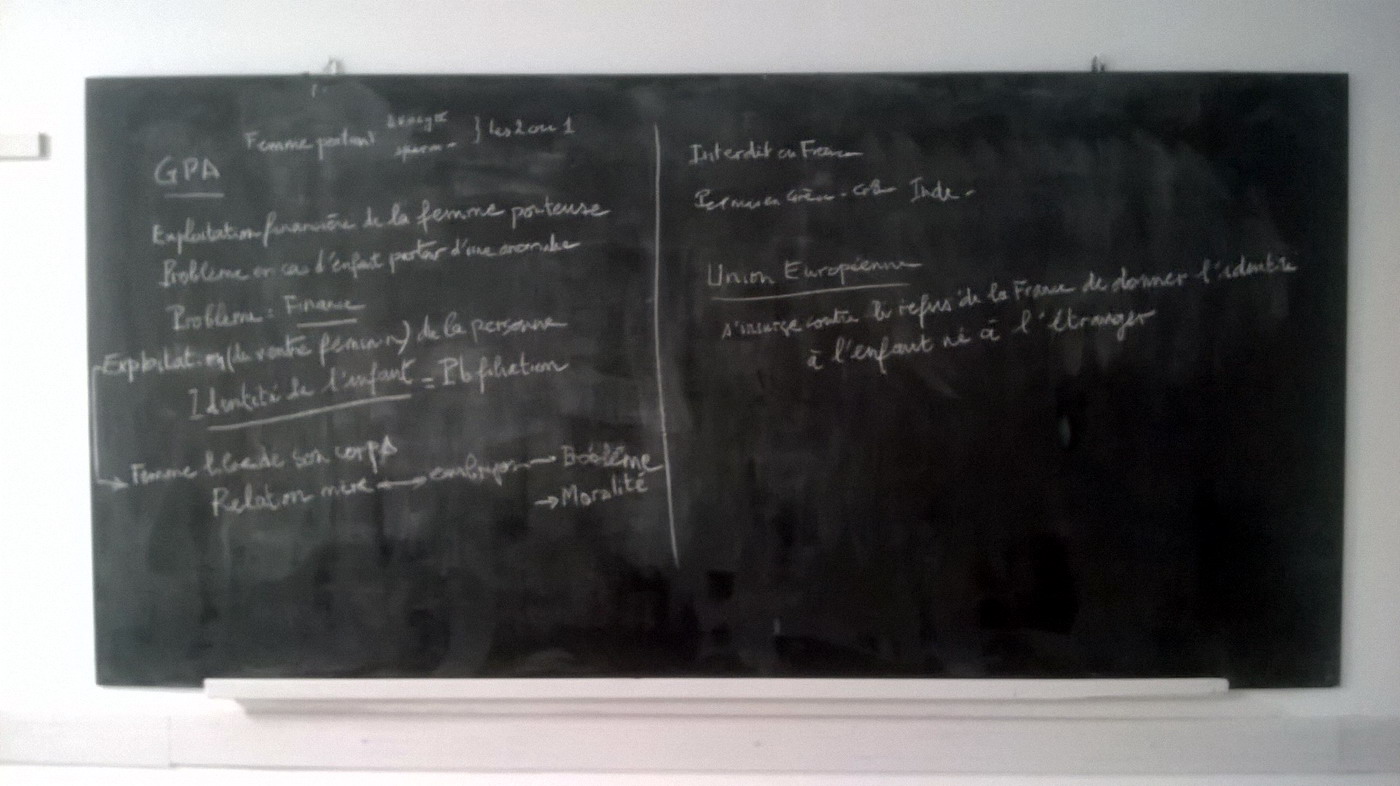 Femme portant
sperm. } les 2 ou 1
GPA
Exploitation financière de la femme porteuse
Problème en cas d'enfant porteur d'une anomalie
Problème : Finance
Exploitation (du ventre féminin) de la personne
Identité de l'enfant = Pb filiation
Femme libre de son corps
Relation mère embryon Problème
Moralité
Interdit en France
Permis en Inde.
Union Européenne
s'insurge contre le refus de la France de donner l'identité
à l'enfant né à l'étranger